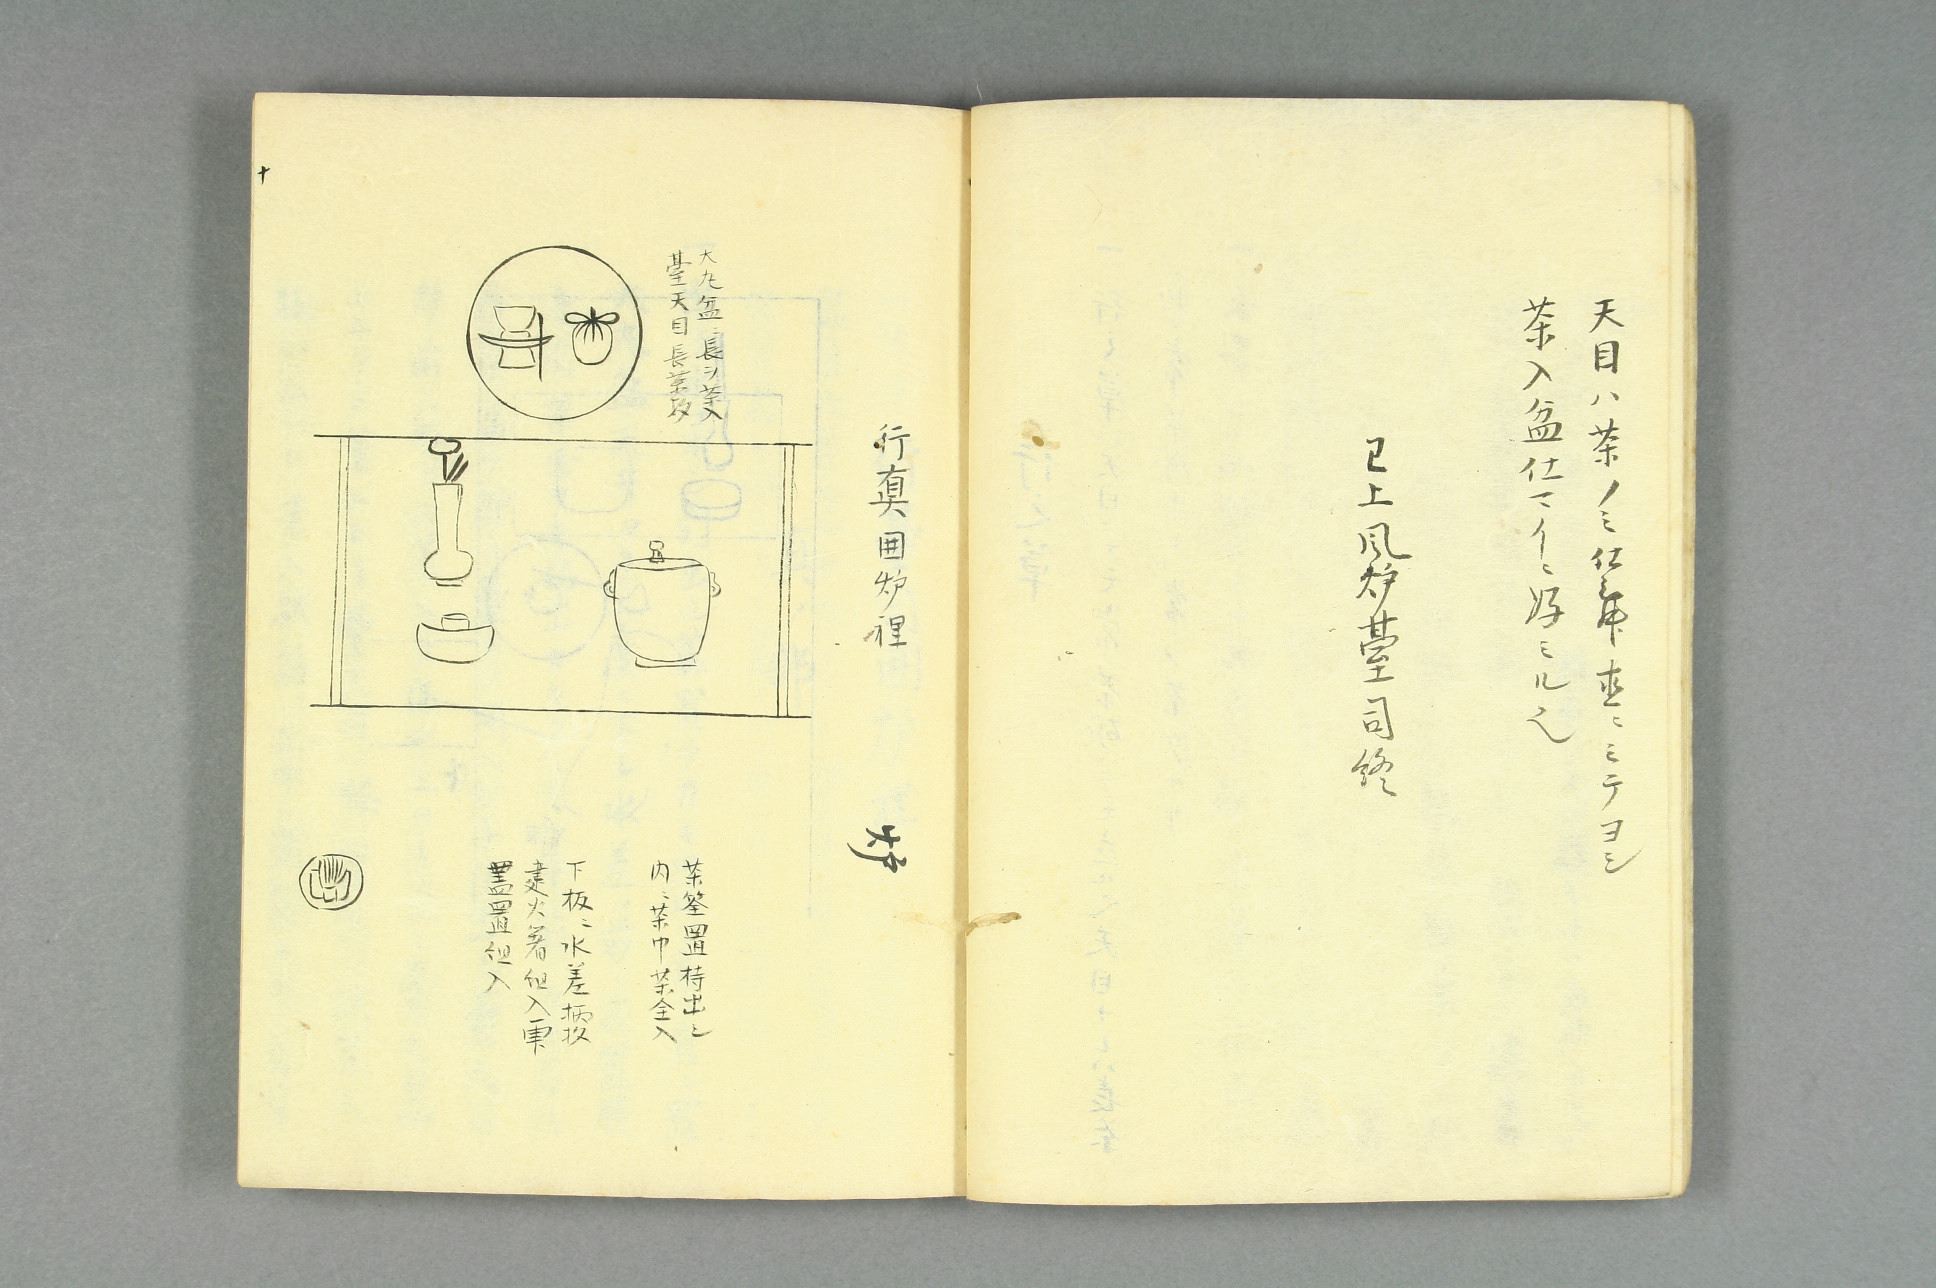 天目ハ茶ノミ仕舞
ミテヨシ
茶入盆仕マイニ好ミル也
已上風炉臺司終
行真囲炉裡
大丸盆ニ長ヲ茶入
臺天目長茶杓
茶筌置持出シ
内ニ茶巾茶全入
下板ニ水差柄杓
建火箸組入軍
蓋置組入
十